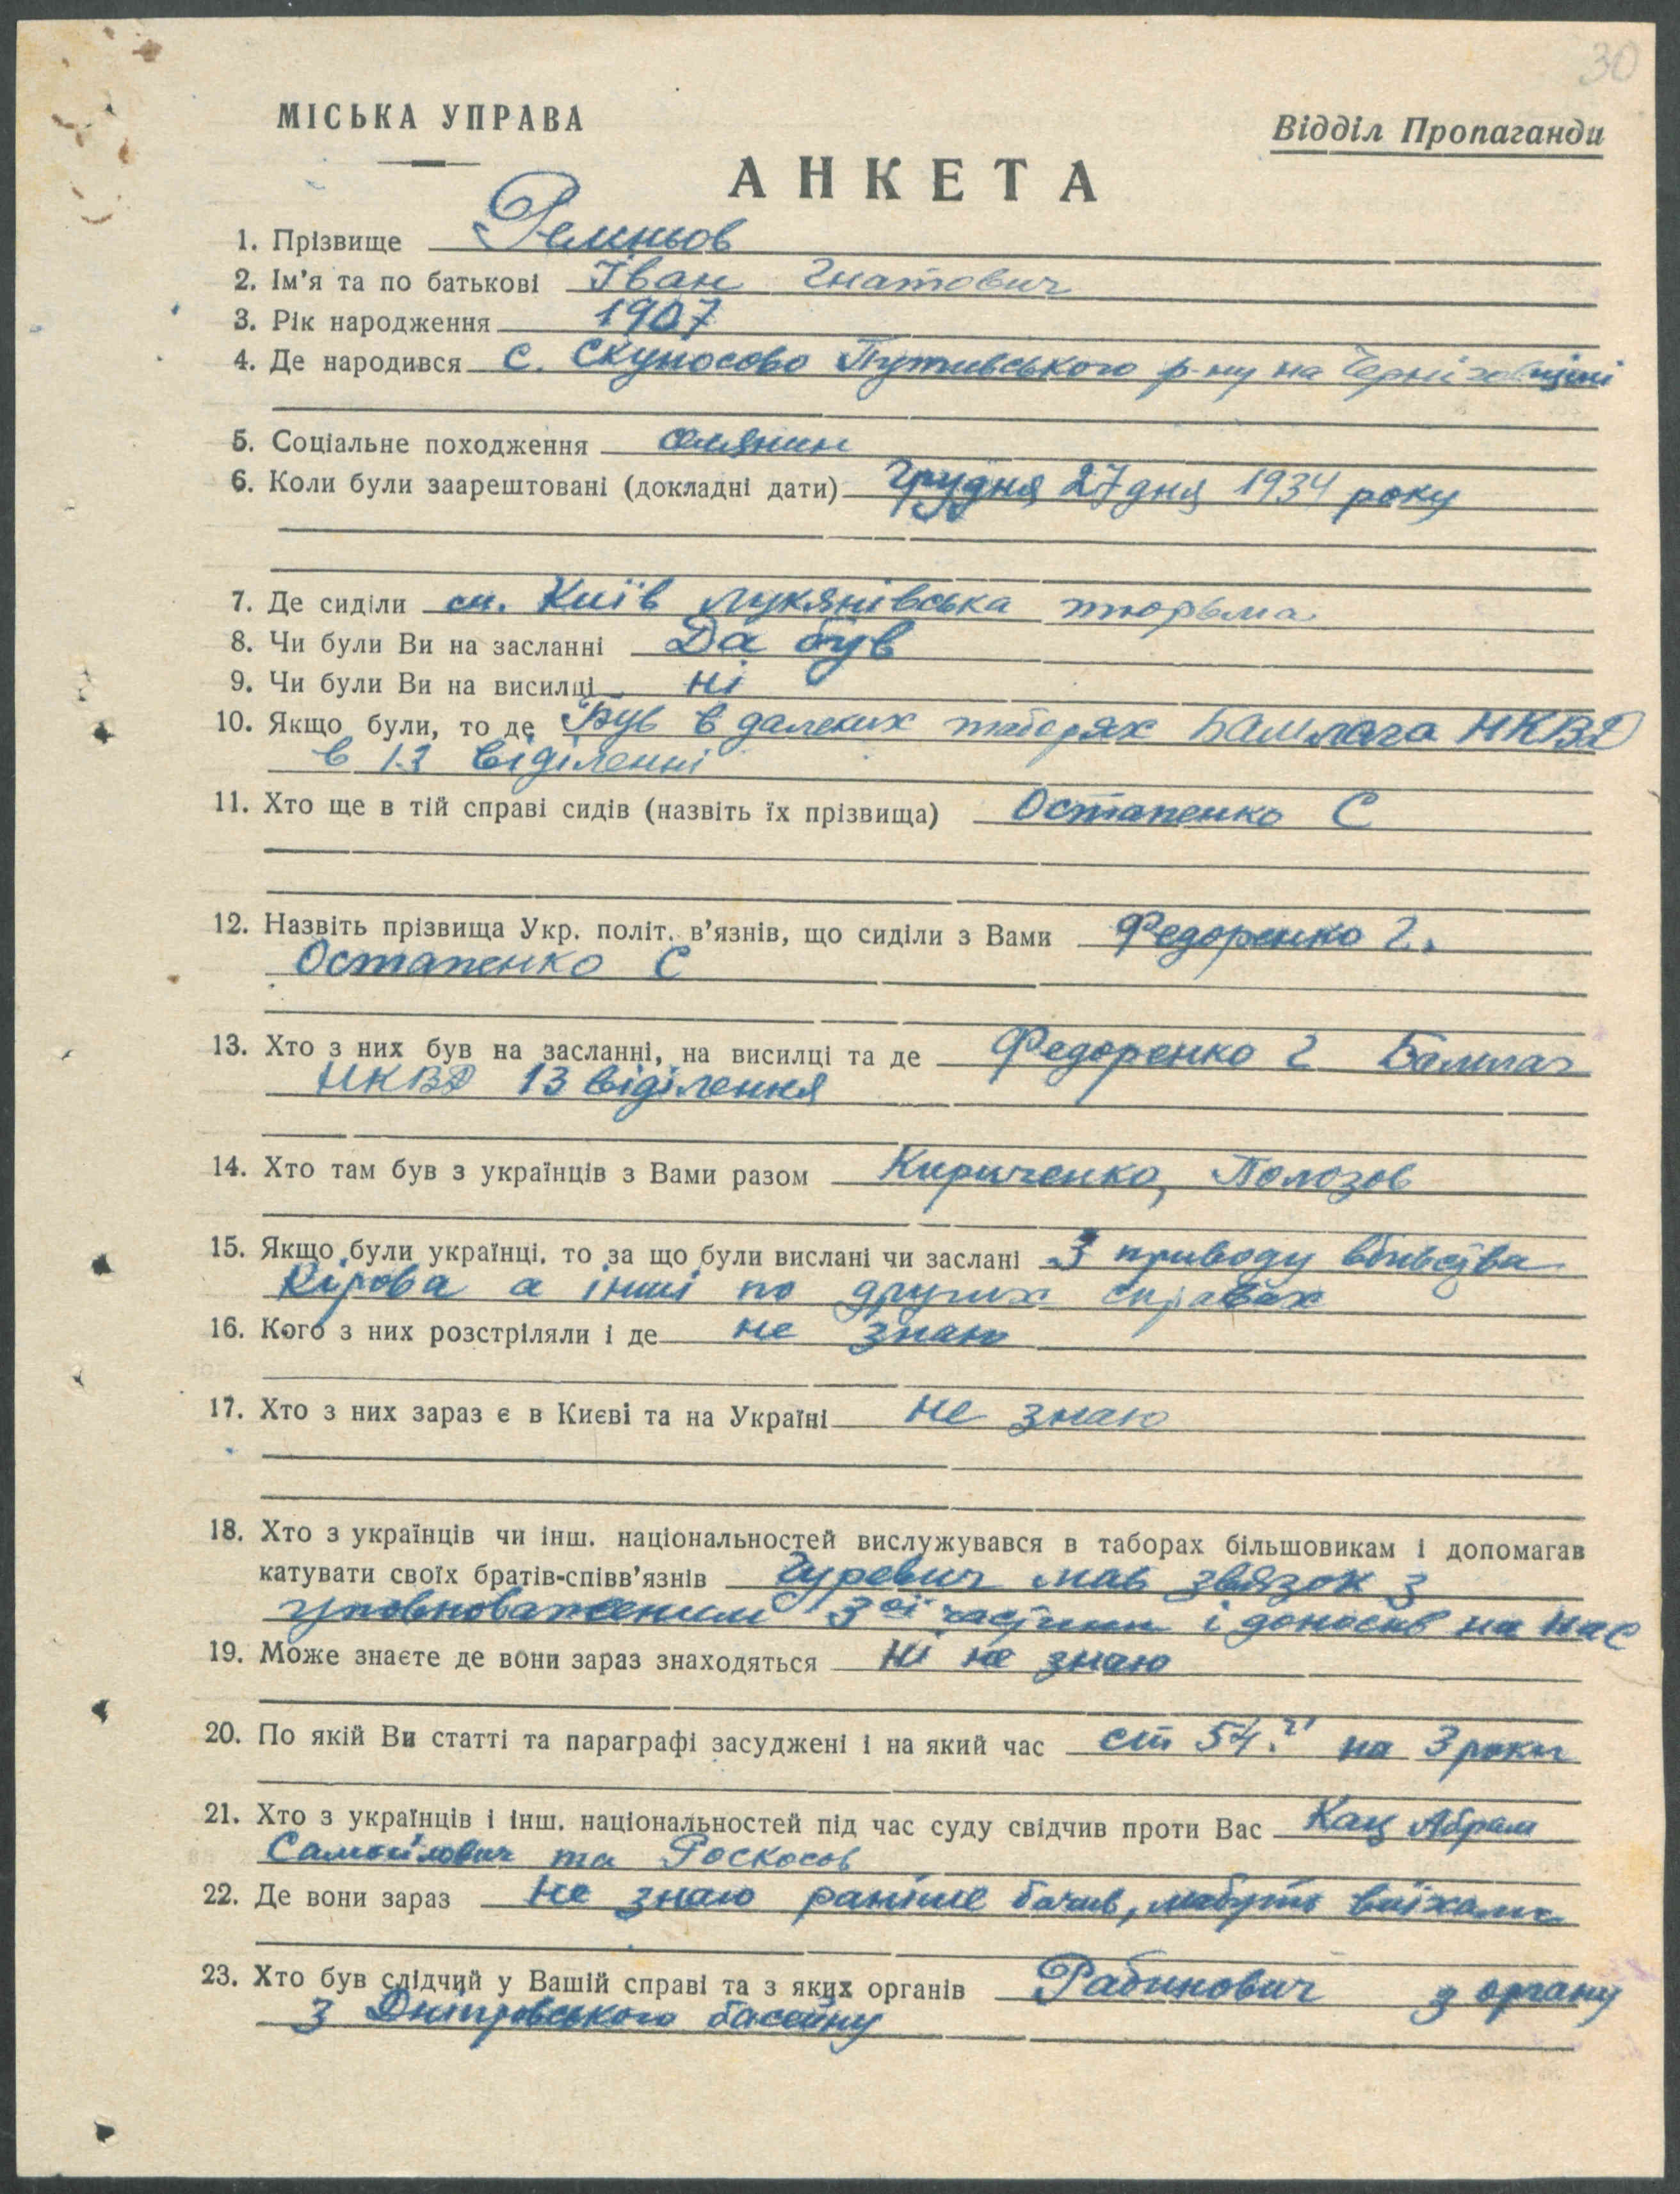 30
МІСЬКА УПРАВА
Відділ Пропаганди
АНКЕТА
1. Прізвище Ремньов
2. Ім'я та по батькові Іван Гнатович
3. Рік народження 1907
4. Де народився с. Скуносово Путивського р-ну на Черніговщині
5. Соціальне походження селянин
6. Коли були заарештовані (докладні дати) Грудня 27 дня 1934 року
7. Де сиділи м. Київ лукянівська тюрьма
8. Чи були Ви на засланні Да був
9. Чи були Ви на висилці ні
10. Якщо були, то де Був в далеких таборях Бамлага НКВД
в 13 віділенні
11. Хто ще в тій справі сидів (назвіть їх прізвища) Остапенко С
12. Назвіть прізвища Укр. політ. в'язнів, що сиділи з Вами Федоренко Г.
Остапенко С
13. Хто з них був на засланні, на висилці та де Федоренко Г Бамлаг
НКВД 13 віділення
14. Хто там був з українців з Вами разом Кириченко, Полозов
15. Якщо були українці, то за що були вислані чи заслані З приводу вбивства
Кірова а інші по других справах
16. Кого з них розстріляли і де не знаю
17. Хто з них зараз є в Києві та на Україні не знаю
18. Хто з українців чи інш. національностей вислужувався в таборах більшовикам і допомагав
катувати своїх братів-співв'язнів Гуревич мав звязок з
уповноваженим 3ої частини і доносив на нас
19. Може знаєте де вони зараз знаходяться Ні не знаю
20. По якій Ви статті та параграфі засуджені і на який час ст 54. на 3 роки
21. Хто з українців і інш. національностей під час суду свідчив проти Вас Кац Абрам
Самойлович та Роскосов
22. Де вони зараз Не знаю раніше бачив, мабуть виїхали
23. Хто був слідчий у Вашій справі та з яких органів Рабинович з органу
З Дніпровського басейну